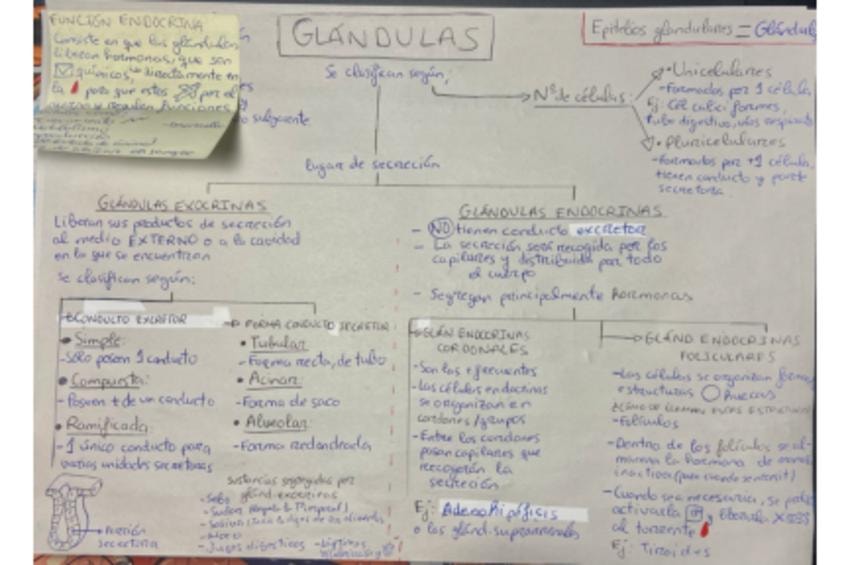 FUNCIÓN ENDOCRINA
Consiste en que las glándulas
liberan hormonas, que son
químicos, directamente en
la para que estos por el
cuerpo y regulen funciones
o subyacente
GLÁNDULAS
Epitelios glandulares = Glándul
Se clasifican según,
Nº de células:
• Unicelulares
- Formados por 1 célula
Ej: Cél caliciformes,
tubo digestivo, vías
• Pluricelulares
- Formados por +1 célula,
tienen conducto y
secretora
lugar de secreción
GLÁNDULAS EXOCRINAS
Liberan sus productos de secreción
al medio EXTERNO o a la cavidad
en la que se encuentran
Se clasifican según:
CONDUCTO EXCRETOR
• Simple:
- Sólo poseen 1 conducto
• Compuesta:
- Poseen + de un conducto
• Ramificada:
- 1 único conducto para
varias unidades secretoras
Porción
secretoria
FORMA CONDUCTO SECRETOR
• Tubular
- Forma recta, de tubo
• Acinar:
- Forma de saco
• Alveolar:
- Forma redondeada
Sustancias segregadas por
gland. exocrinas
- Sebo
- Sudor
- Saliva
- Moco
- Jugos digestivos - Lágrimas
GLÁNDULAS ENDOCRINAS
- NO tienen conducto excretor
- La secreción será recogida por los
capilares y distribuida por todo
el cuerpo
- Segregan principalmente hormonas
GLÁN ENDOCRINAS
CORDONALES
- Son las + frecuentes
- Las células endocrinas
se organizan en
cordones/grupos
- Entre los cordones
pasan capilares que
recogerán la
secreción
Ej: Adenohipófisis
o las glánd. suprarrenales
GLÁND ENDOCRINAS
FOLICULARES
- Las células se organizan
estructuras huecas
¿CÓMO SE LLAMAN ESTAS ESTRUCTURAS
- Folículos
- Dentro de los folículos se al-
macena la hormona de
inactiva
- Cuando sea necesaria, se
activarla y liberarla
al torrente
Ej: Tiroides